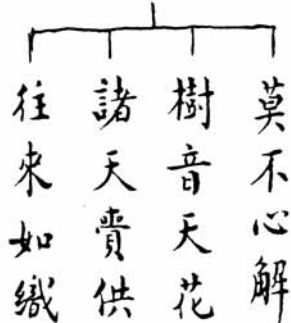 莫不心解
樹音天花
諸天賷供
往來如織